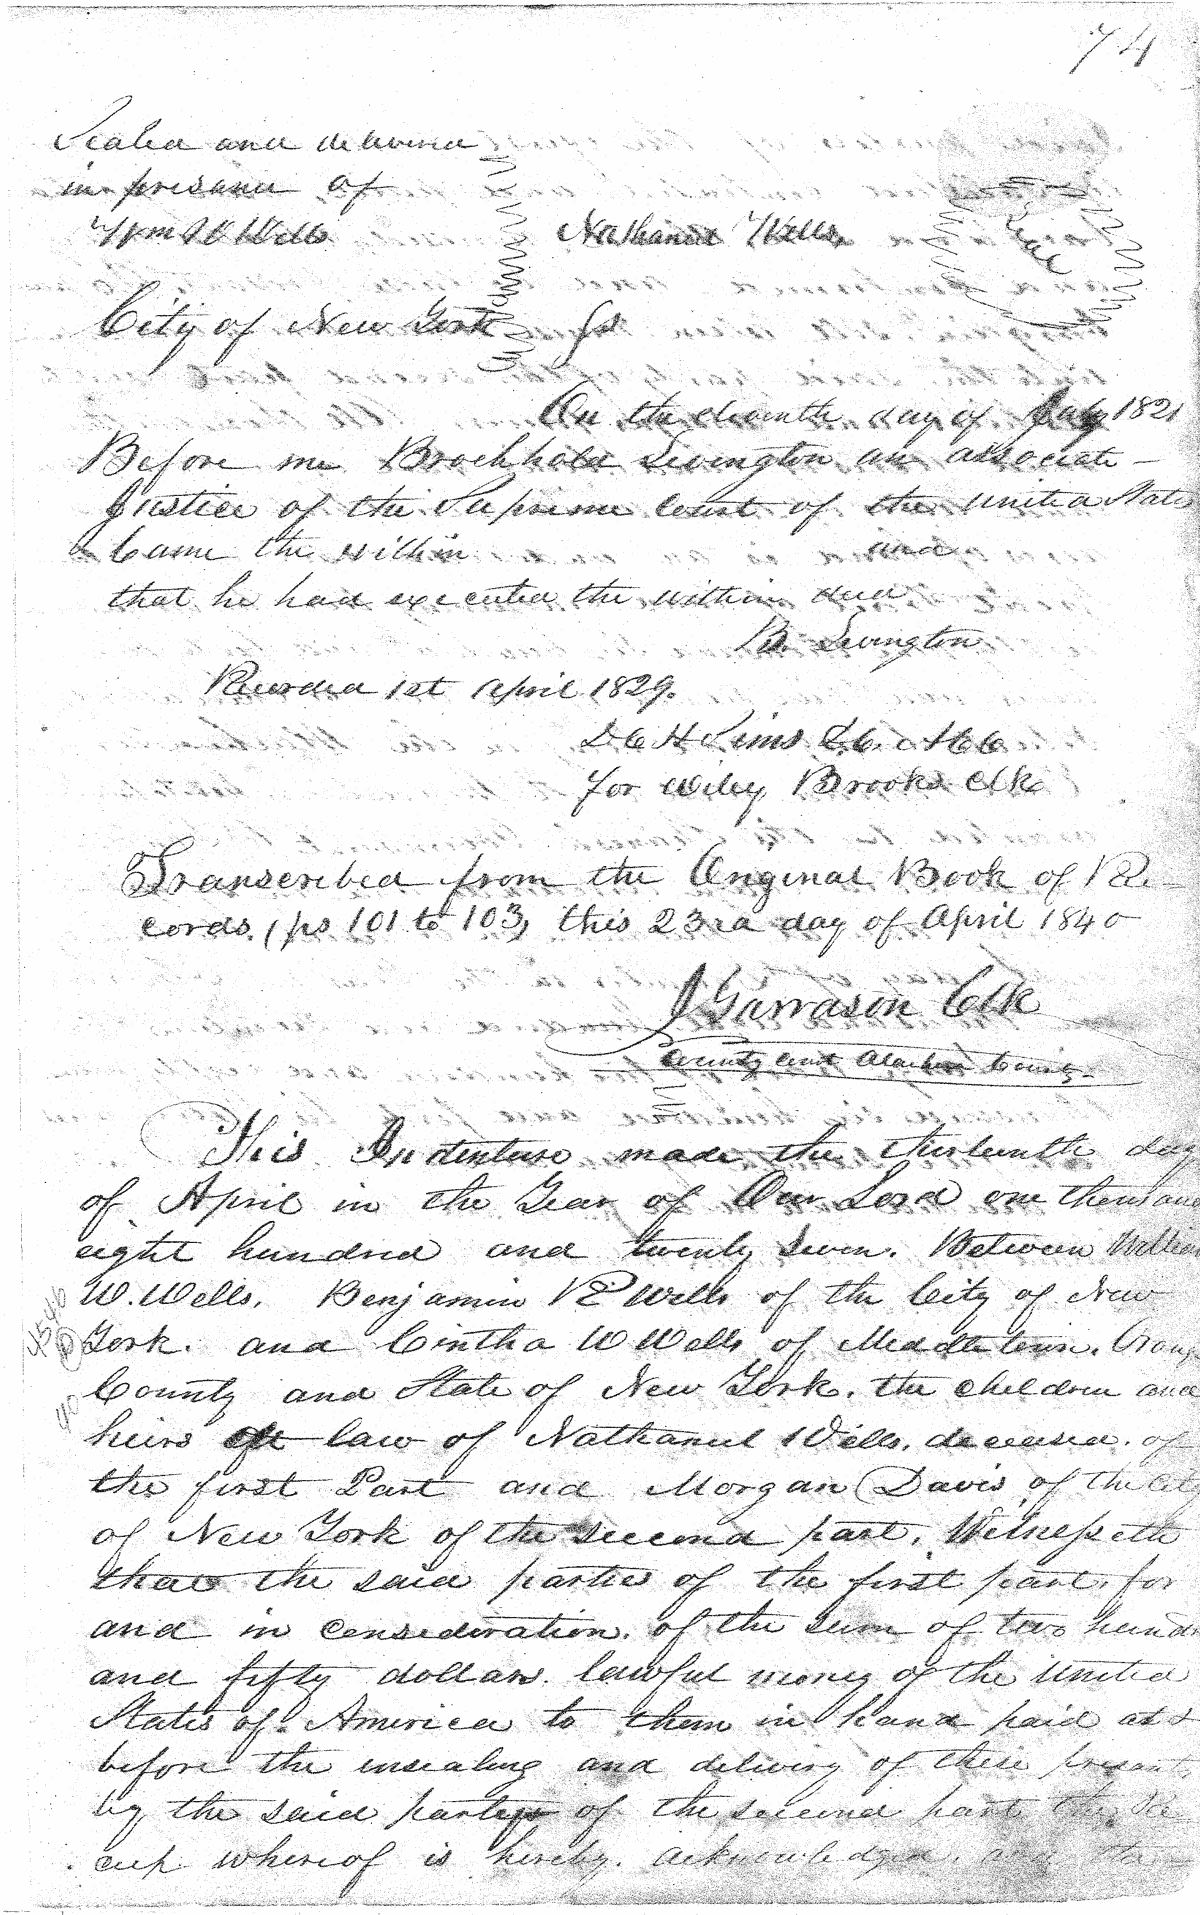 74
Sealed and delivered
in presence of
Wm W Wells Nathaniel Wells. Seal
City of New York Ss
On the eleventh day of July 1821
Before me Brockholst Livington an associate
Justice of the Supreme Court of the United States
Came the within and
that he had executed the within deed
B. Livington
Recorded 1st April 1829.
D C H Sims D.C. A C C
for Wiley Brooks Clk
Transcribed from the Original Book of Re-
cords, (ps 101 to 103, this 23rd day of April 1840
J Garrason Clk
County Court Alachua County
This Indenture made the thirteenth day
of April in the Year of Our Lord one thousand
eight hundred and twenty seven. Between William
W. Wells. Benjamin P Wells of the City of New
York. and Cintha W Wells of Meddletown. Orange
County and State of New York. the children and
heirs at law of Nathaniel Wells. deceased. of
the first Part and Morgan Davis of the City
of New York of the second part. Witnesseth
that the said parties of the first part. for
and in consideration. of the sum of two hundr
and fifty dollars. lawful money of the United
States of America to them in hand paid at &
before the ensealing and delivery of these presents
by the said party of the second part the Re
ceip whereof is hereby. acknowledged. and